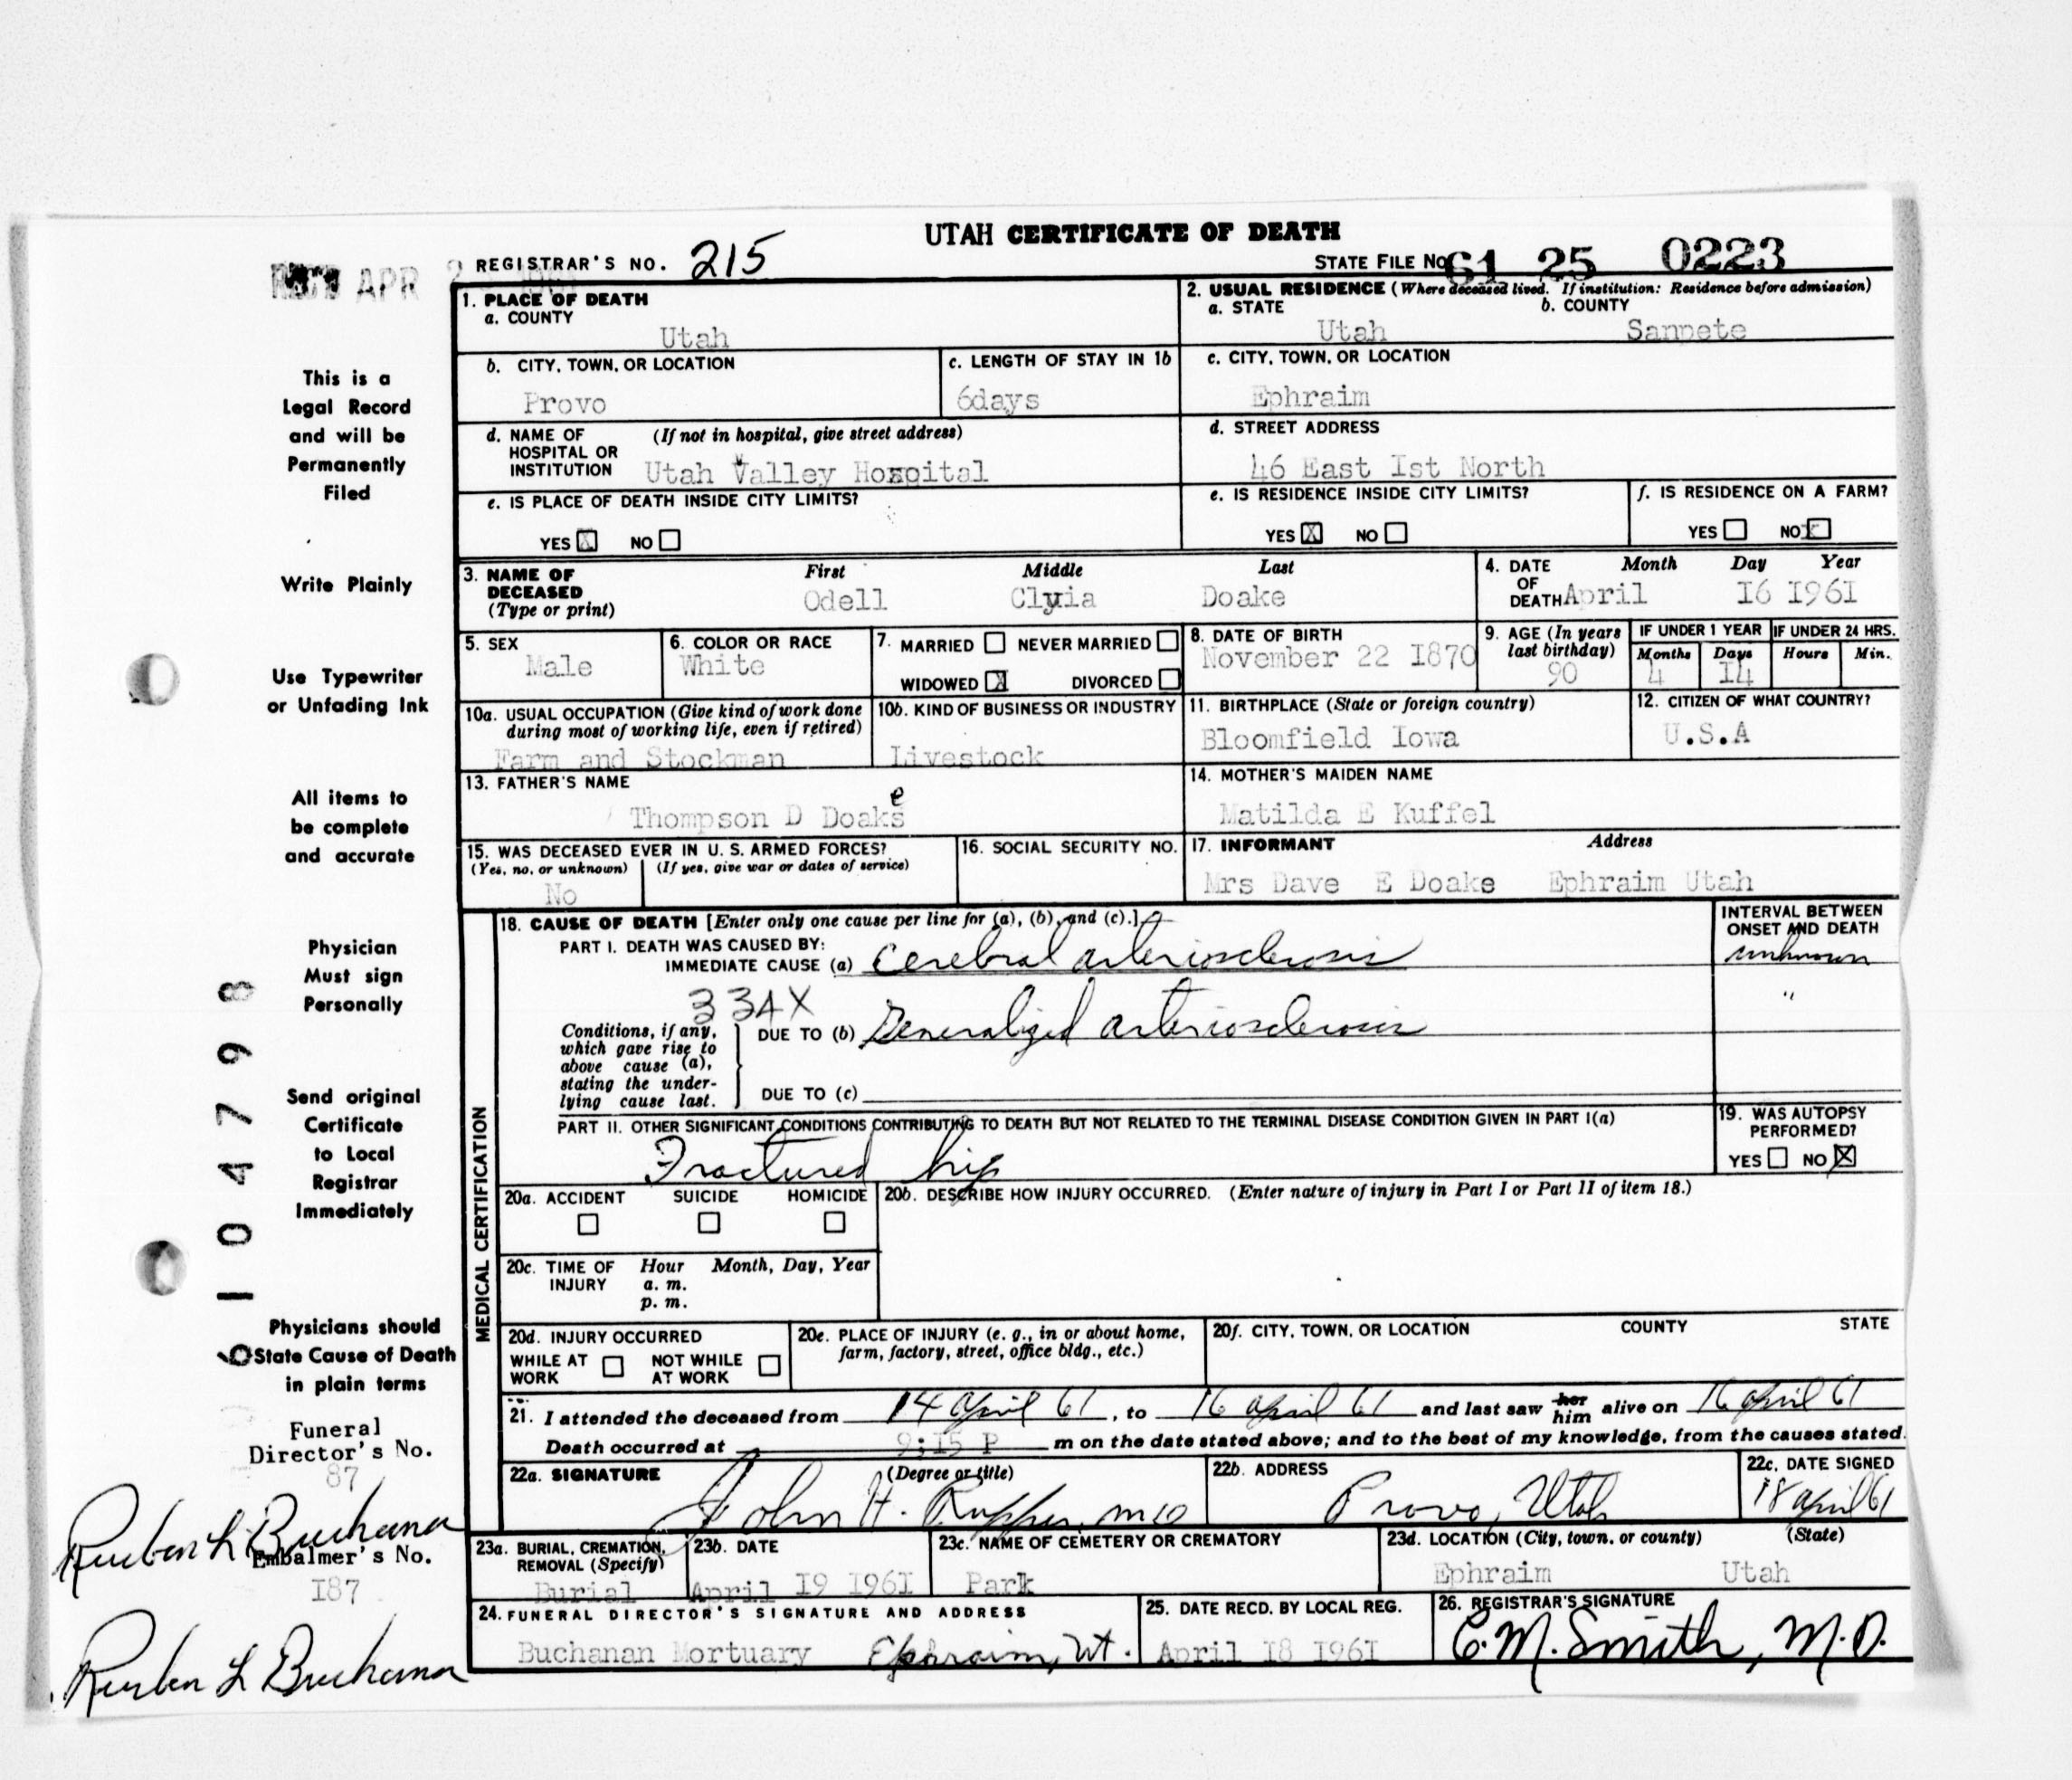 UTAH CERTIFICATE OF DEATH
REGISTRAR'S NO. 215
STATE FILE No. 61 25 0223
APR
1. PLACE OF DEATH
a. COUNTY
Utah
2. USUAL RESIDENCE (Where deceased lived. If institution: Residence before admission)
a. STATE b. COUNTY
Utah Sanpete
b. CITY, TOWN, OR LOCATION
Provo
c. LENGTH OF STAY IN 1b
6days
c. CITY, TOWN, OR LOCATION
Ephraim
d. NAME OF HOSPITAL OR INSTITUTION (If not in hospital, give street address)
Utah Valley Hospital
d. STREET ADDRESS
46 East Ist North
e. IS PLACE OF DEATH INSIDE CITY LIMITS?
YES X NO
e. IS RESIDENCE INSIDE CITY LIMITS?
YES X NO
f. IS RESIDENCE ON A FARM?
YES NO X
3. NAME OF DECEASED (Type or print)
First Middle Last
Odell Clyia Doake
4. DATE OF DEATH Month Day Year
April I6 I96I
5. SEX
Male
6. COLOR OR RACE
White
7. MARRIED NEVER MARRIED
WIDOWED X DIVORCED
8. DATE OF BIRTH
November 22 I870
9. AGE (In years last birthday)
90
IF UNDER 1 YEAR IF UNDER 24 HRS.
Months Days Hours Min.
4 I4
10a. USUAL OCCUPATION (Give kind of work done during most of working life, even if retired)
Farm and Stockman
10b. KIND OF BUSINESS OR INDUSTRY
Livestock
11. BIRTHPLACE (State or foreign country)
Bloomfield Iowa
12. CITIZEN OF WHAT COUNTRY?
U.S.A
13. FATHER'S NAME
Thompson D Doake
14. MOTHER'S MAIDEN NAME
Matilda E Kuffel
15. WAS DECEASED EVER IN U. S. ARMED FORCES?
(Yes, no, or unknown) (If yes, give war or dates of service)
No
16. SOCIAL SECURITY NO.
17. INFORMANT Address
Mrs Dave E Doake Ephraim Utah
MEDICAL CERTIFICATION
18. CAUSE OF DEATH [Enter only one cause per line for (a), (b), and (c).]
INTERVAL BETWEEN ONSET AND DEATH
PART I. DEATH WAS CAUSED BY:
IMMEDIATE CAUSE (a) Cerebral arteriosclerosis unknown
334X
Conditions, if any, which gave rise to above cause (a), stating the underlying cause last.
DUE TO (b) Generalized arteriosclerosis "
DUE TO (c)
PART II. OTHER SIGNIFICANT CONDITIONS CONTRIBUTING TO DEATH BUT NOT RELATED TO THE TERMINAL DISEASE CONDITION GIVEN IN PART I(a)
Fractured hip
19. WAS AUTOPSY PERFORMED?
YES NO X
20a. ACCIDENT SUICIDE HOMICIDE
20b. DESCRIBE HOW INJURY OCCURRED. (Enter nature of injury in Part I or Part II of item 18.)
20c. TIME OF INJURY Hour Month, Day, Year
a. m.
p. m.
20d. INJURY OCCURRED
WHILE AT WORK NOT WHILE AT WORK
20e. PLACE OF INJURY (e. g., in or about home, farm, factory, street, office bldg., etc.)
20f. CITY, TOWN, OR LOCATION COUNTY STATE
21. I attended the deceased from 14 April 61, to 16 April 61 and last saw her him alive on 16 April 61
Death occurred at 9:I5 P m on the date stated above; and to the best of my knowledge, from the causes stated.
22a. SIGNATURE (Degree or title)
John H. Rupper, MD
22b. ADDRESS
Provo, Utah
22c. DATE SIGNED
18 April 61
23a. BURIAL, CREMATION, REMOVAL (Specify)
Burial
23b. DATE
April I9 I96I
23c. NAME OF CEMETERY OR CREMATORY
Park
23d. LOCATION (City, town, or county) (State)
Ephraim Utah
24. FUNERAL DIRECTOR'S SIGNATURE AND ADDRESS
Buchanan Mortuary Ephraim, Ut.
25. DATE RECD. BY LOCAL REG.
April I8 I96I
26. REGISTRAR'S SIGNATURE
C. M. Smith, M.D.
This is a
Legal Record
and will be
Permanently
Filed
Write Plainly
Use Typewriter
or Unfading Ink
All items to
be complete
and accurate
Physician
Must sign
Personally
Send original
Certificate
to Local
Registrar
Immediately
Physicians should
State Cause of Death
in plain terms
6104798
Funeral
Director's No.
87
Reuben L Buchanan
Embalmer's No.
I87
Reuben L Buchanan